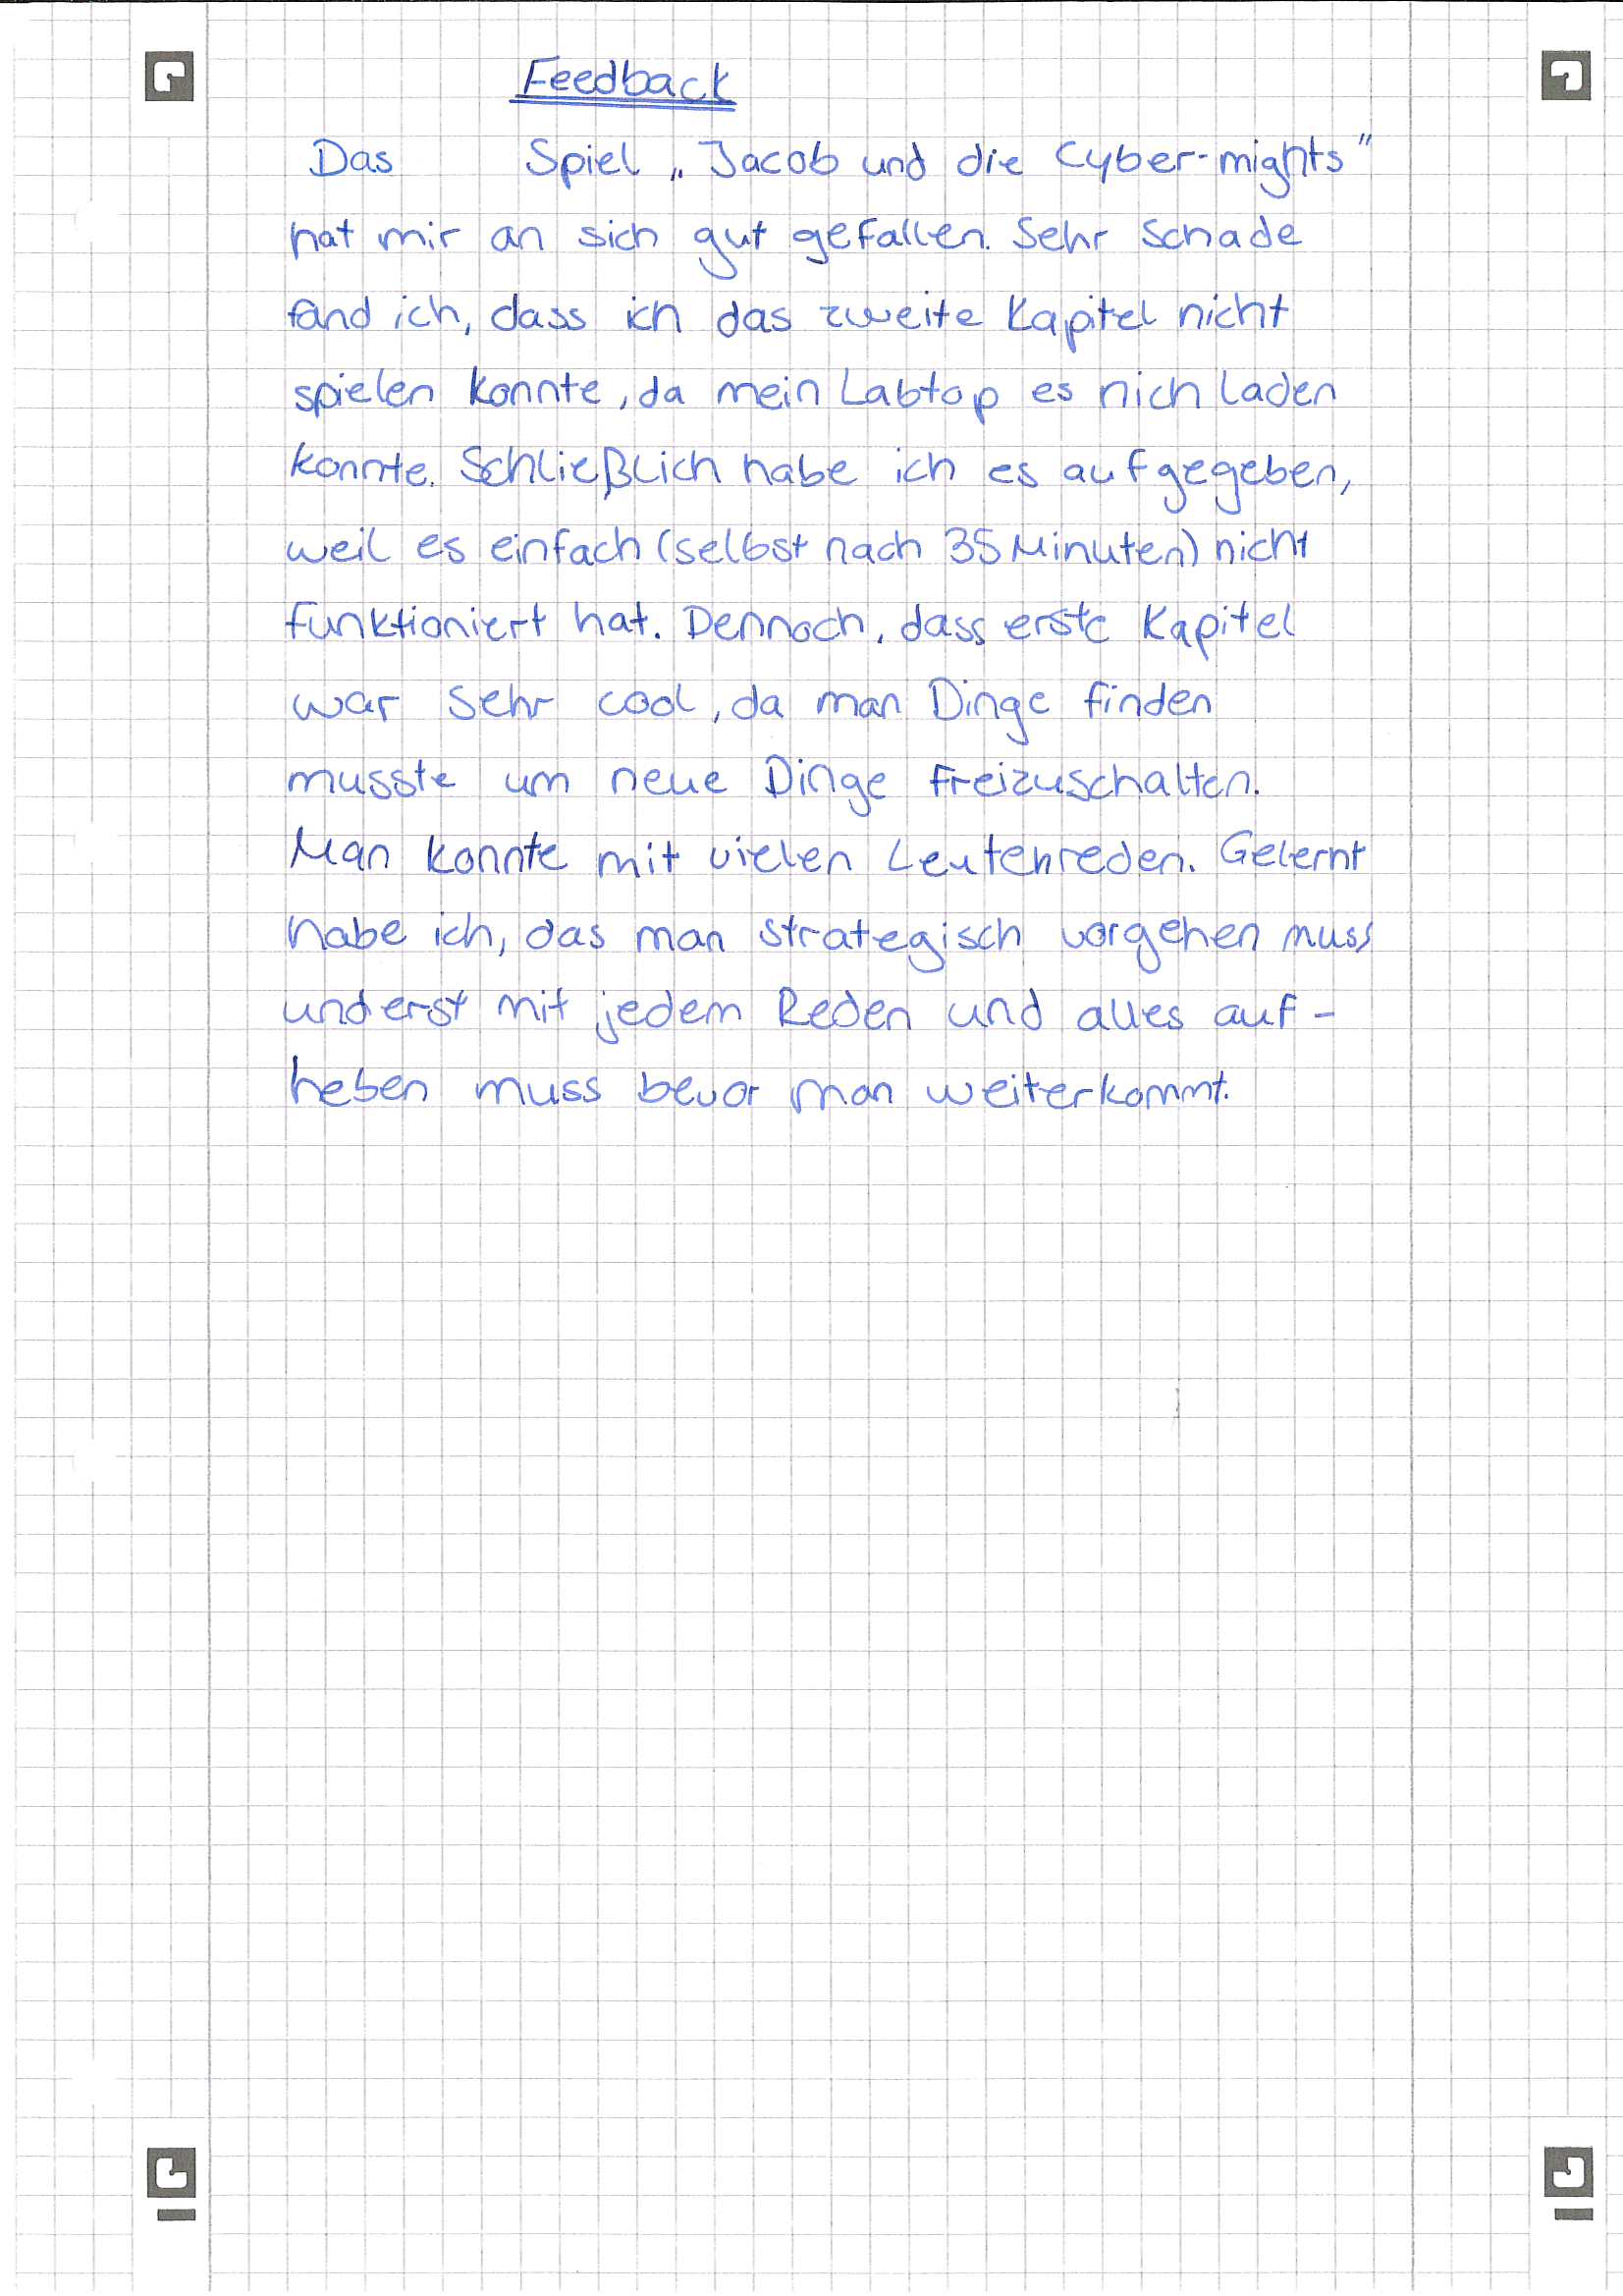 Feedback
Das Spiel „Jacob und die Cyber-mights"
hat mir an sich gut gefallen. Sehr Schade
fand ich, dass ich das zweite Kapitel nicht
spielen konnte, da mein Labtop es nich laden
konnte. Schließlich habe ich es aufgegeben,
weil es einfach (selbst nach 35 Minuten) nicht
funktioniert hat. Dennoch, dass erste Kapitel
war sehr cool, da man Dinge finden
musste um neue Dinge freizuschalten.
Man konnte mit vielen Leuten reden. Gelernt
habe ich, das man strategisch vorgehen muss
und erst mit jedem Reden und alles auf-
heben muss bevor man weiterkommt.